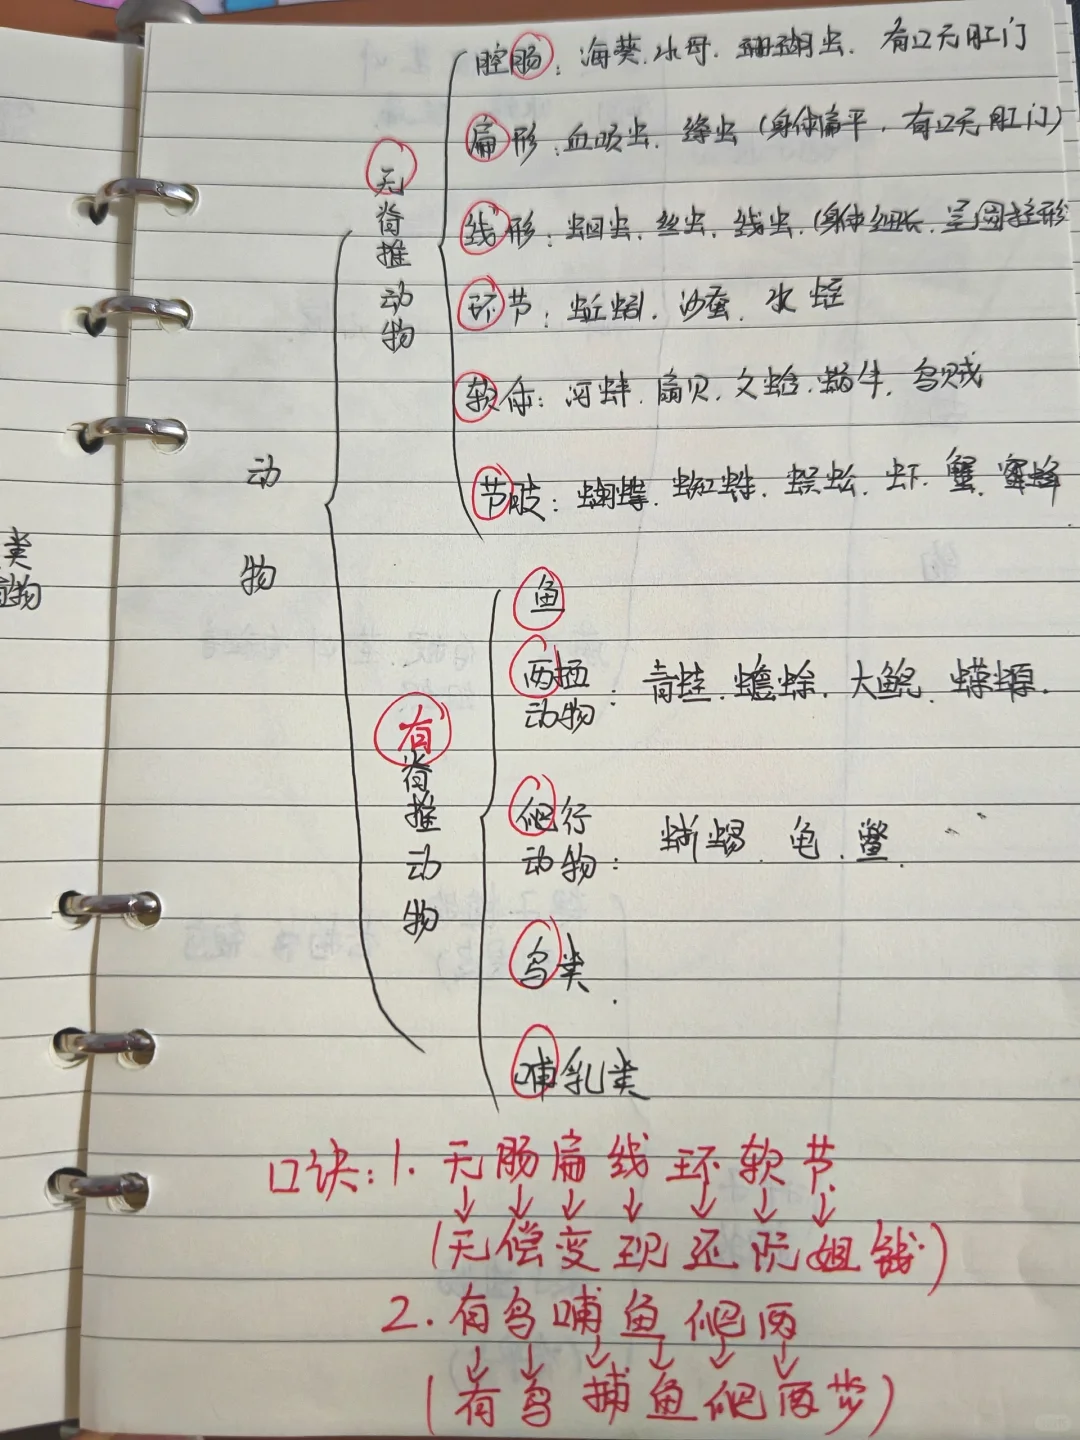 腔肠：海葵.水母.珊瑚虫.有口无肛门
扁形：血吸虫.绦虫（身体扁平，有口无肛门）
无脊推动物
线形：蛔虫.丝虫.线虫.（身体细长，呈圆柱形
环节：蚯蚓.沙蚕.水蛭
软体：河蚌.扇贝.文蛤.蜗牛.乌贼
动物
节肢：蝴蝶.蜘蛛.蜈蚣.虾.蟹.蜜蜂
类
植物
鱼
两栖动物：青蛙.蟾蜍.大鲵.蝾螈.
有脊推动物
爬行动物：蜥蜴.龟.鳖.
鸟类.
哺乳类
口诀：1.无肠扁线环软节
（无偿变现还阮姐钱）
2.有鸟哺鱼爬两
（有鸟捕鱼爬两步）